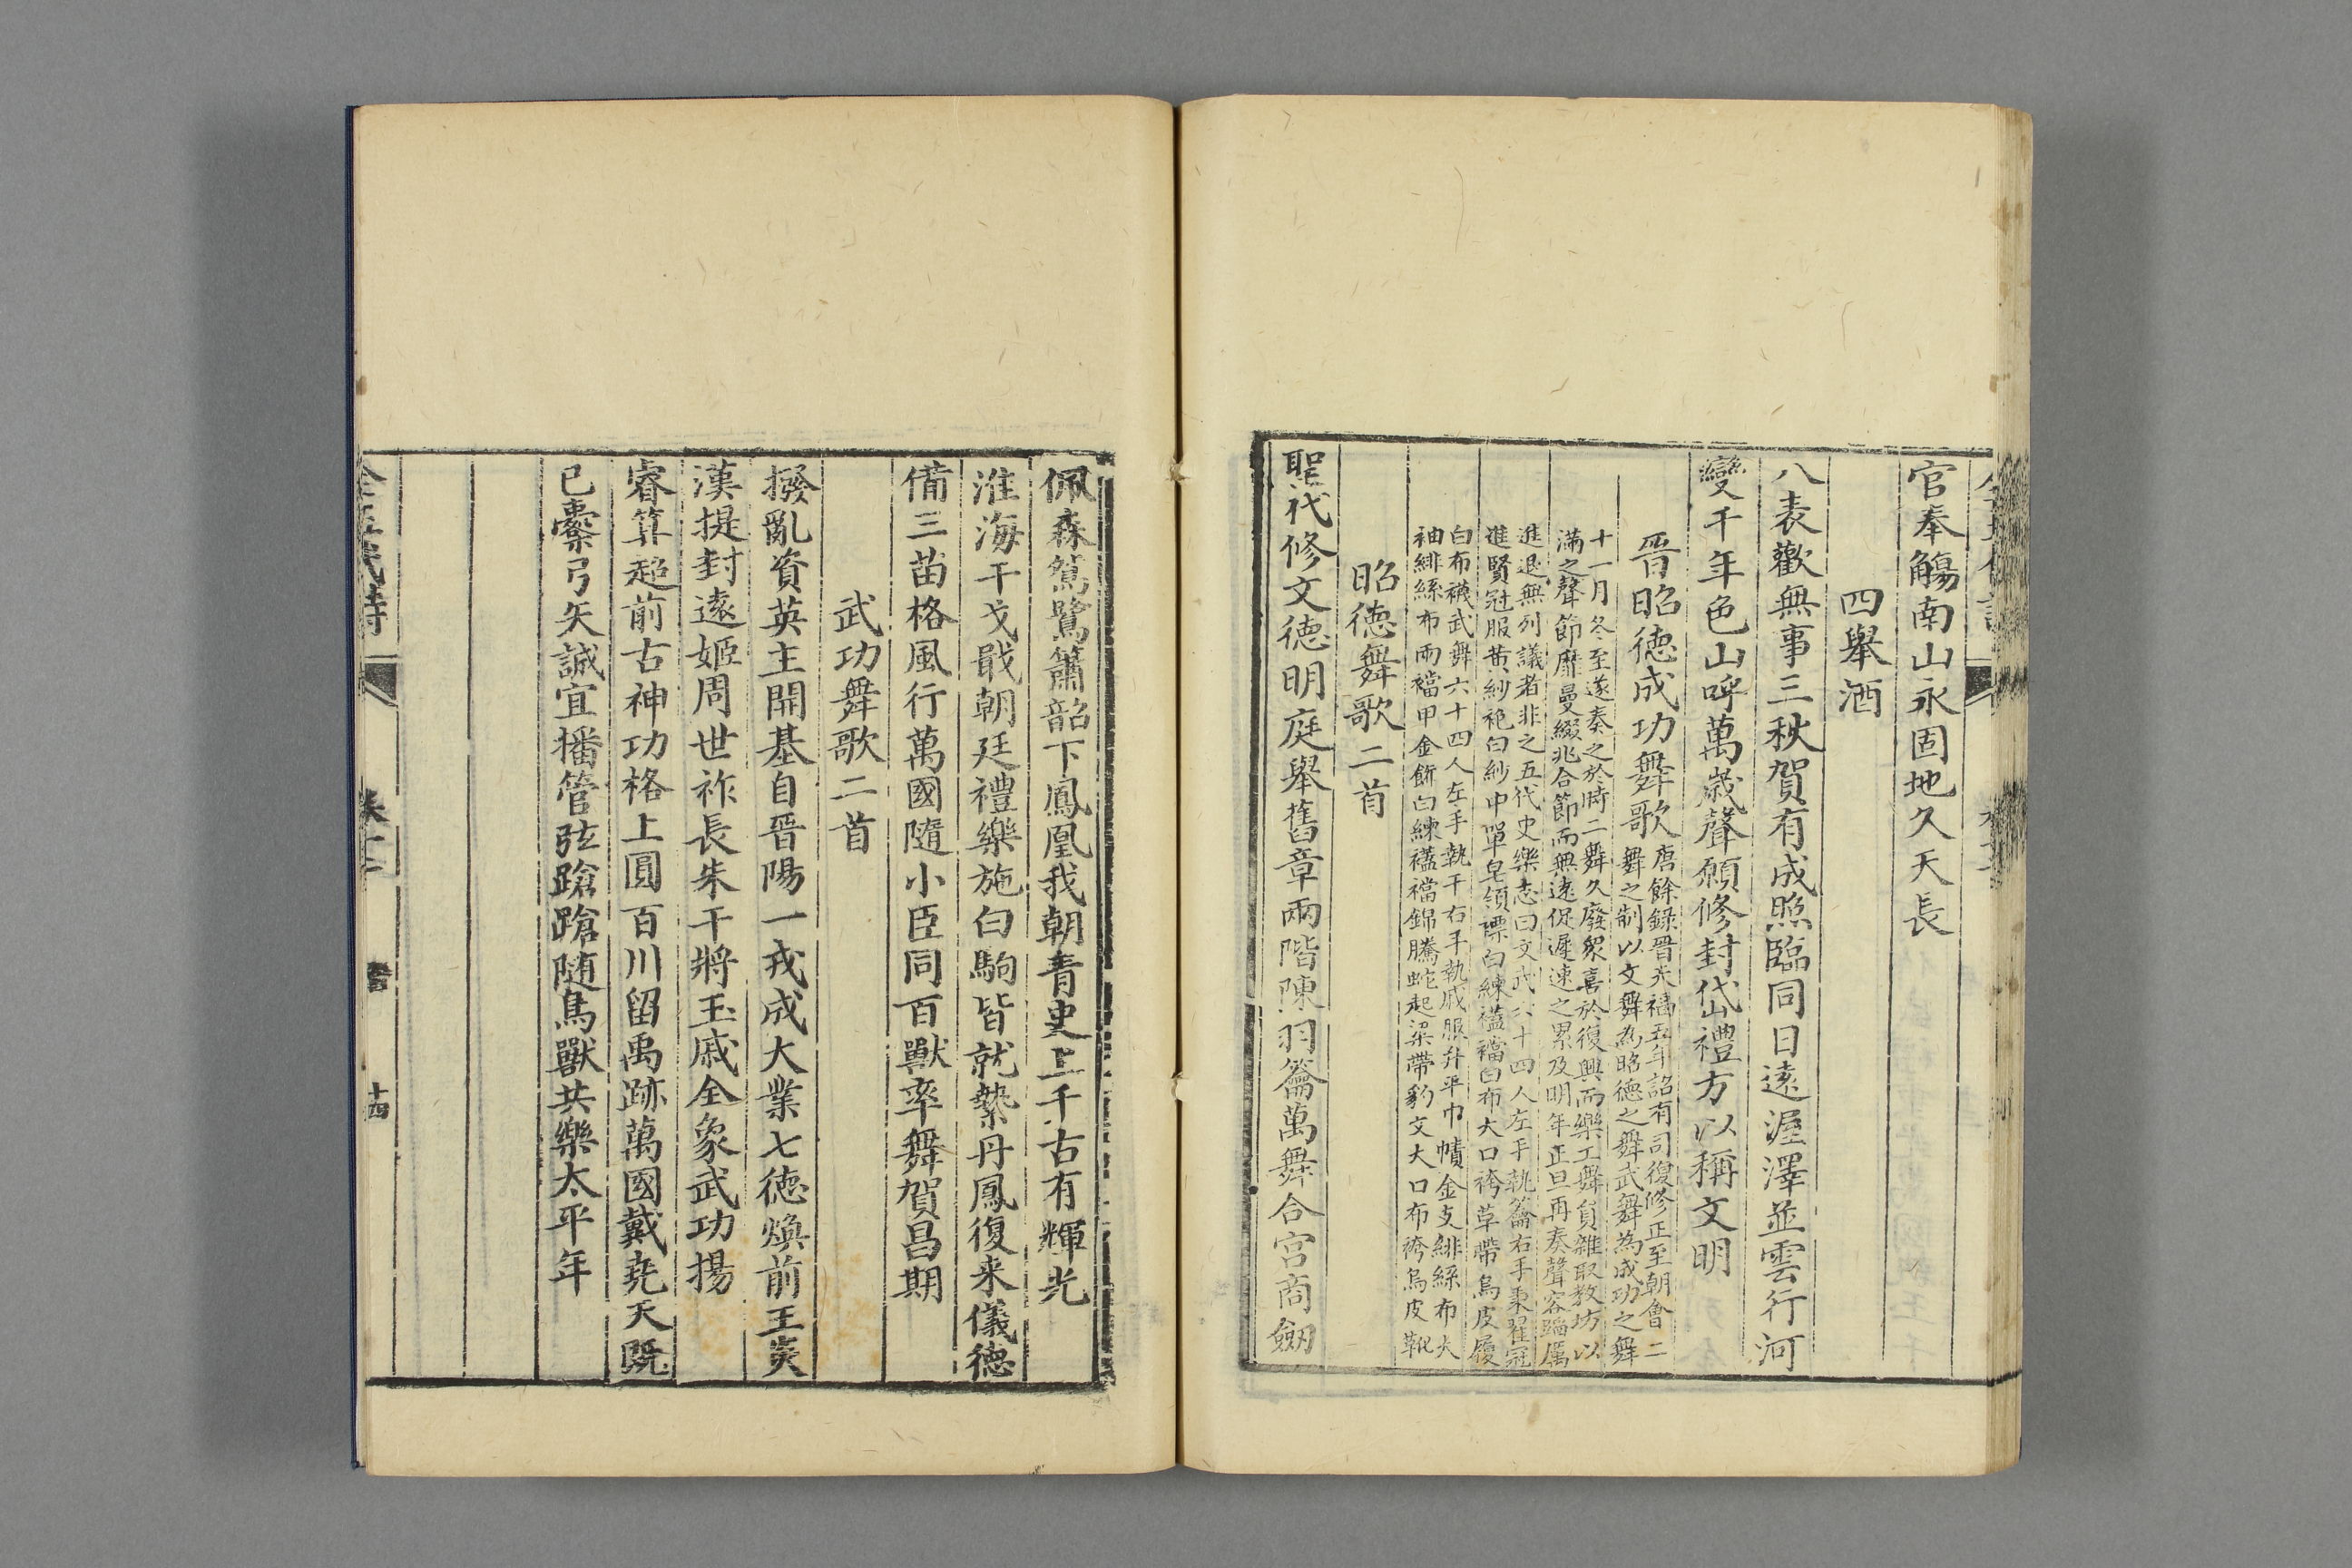 官奉觴南山永固地久天長
四舉酒
八表歡無事三秋賀有成照臨同日遠渥澤並雲行河
變千年色山呼萬歲聲願修封岱禮方以稱文明
晉昭德成功舞歌
唐餘錄晉天福五年詔有司復修正至朝會二
舞之制以文舞為昭德之舞武舞為成功之舞
十一月冬至遂奏之於時二舞久廢眾喜於復興而樂工舞員雜取教坊以
滿之聲節靡曼綴兆合節而無遠促遲速之累及明年正旦再奏聲容蹈厲
進退無列議者非之五代史樂志曰文武六十四人左手執籥右手秉翟冠
進賢冠服黃紗袍白紗中單皂領褾白練𧞤襠白布大口袴革帶烏皮履
白布襪武舞六十四人左手執干右手執戚服弁平巾幘金支緋絲布大
袖緋絲布兩襠甲金餙白練𧞤襠錦騰蛇起梁帶豹文大口布袴烏皮靴
昭德舞歌二首
聖代修文德明庭舉舊章兩階陳羽籥萬舞合宮商劔
佩森鴛鷺簫韶下鳳凰我朝青史上千古有輝光
淮海干戈戢朝廷禮樂施白駒皆就縶丹鳳復来儀德
備三苗格風行萬國隨小臣同百獸率舞賀昌期
武功舞歌二首
撥亂資英主開基自晉陽一戎成大業七德煥前王炎
漢提封遠姬周世祚長朱干將玉戚全象武功揚
睿算超前古神功格上圓百川留禹跡萬國戴堯天既
已櫜弓矢誠宜播管弦蹌蹌随鳥獸共樂太平年
十四